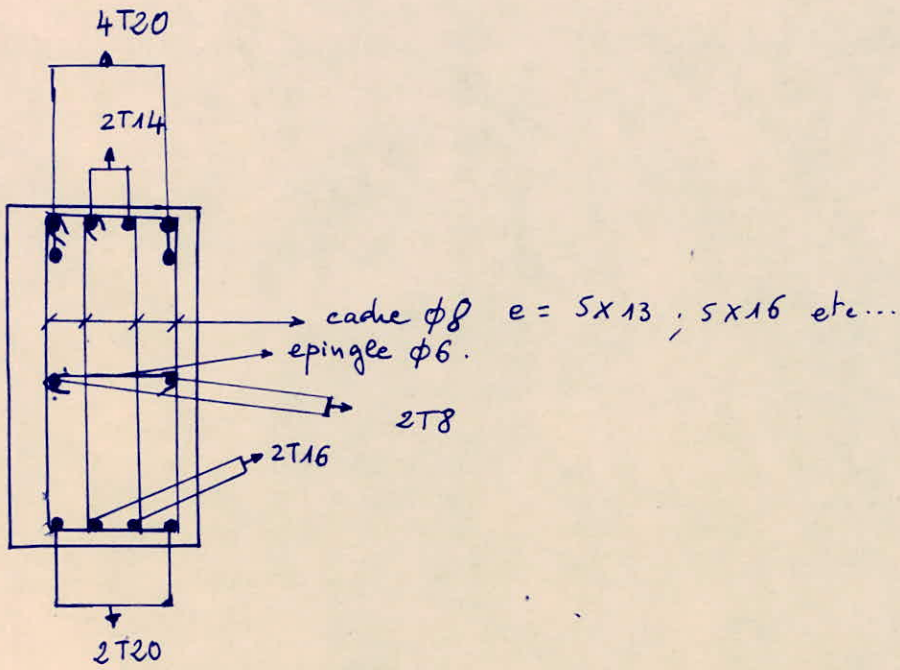 4T20
2T14
cadre φ8 e = 5x13 ; 5x16 etc...
epingle φ6.
2T8
2T16
2T20